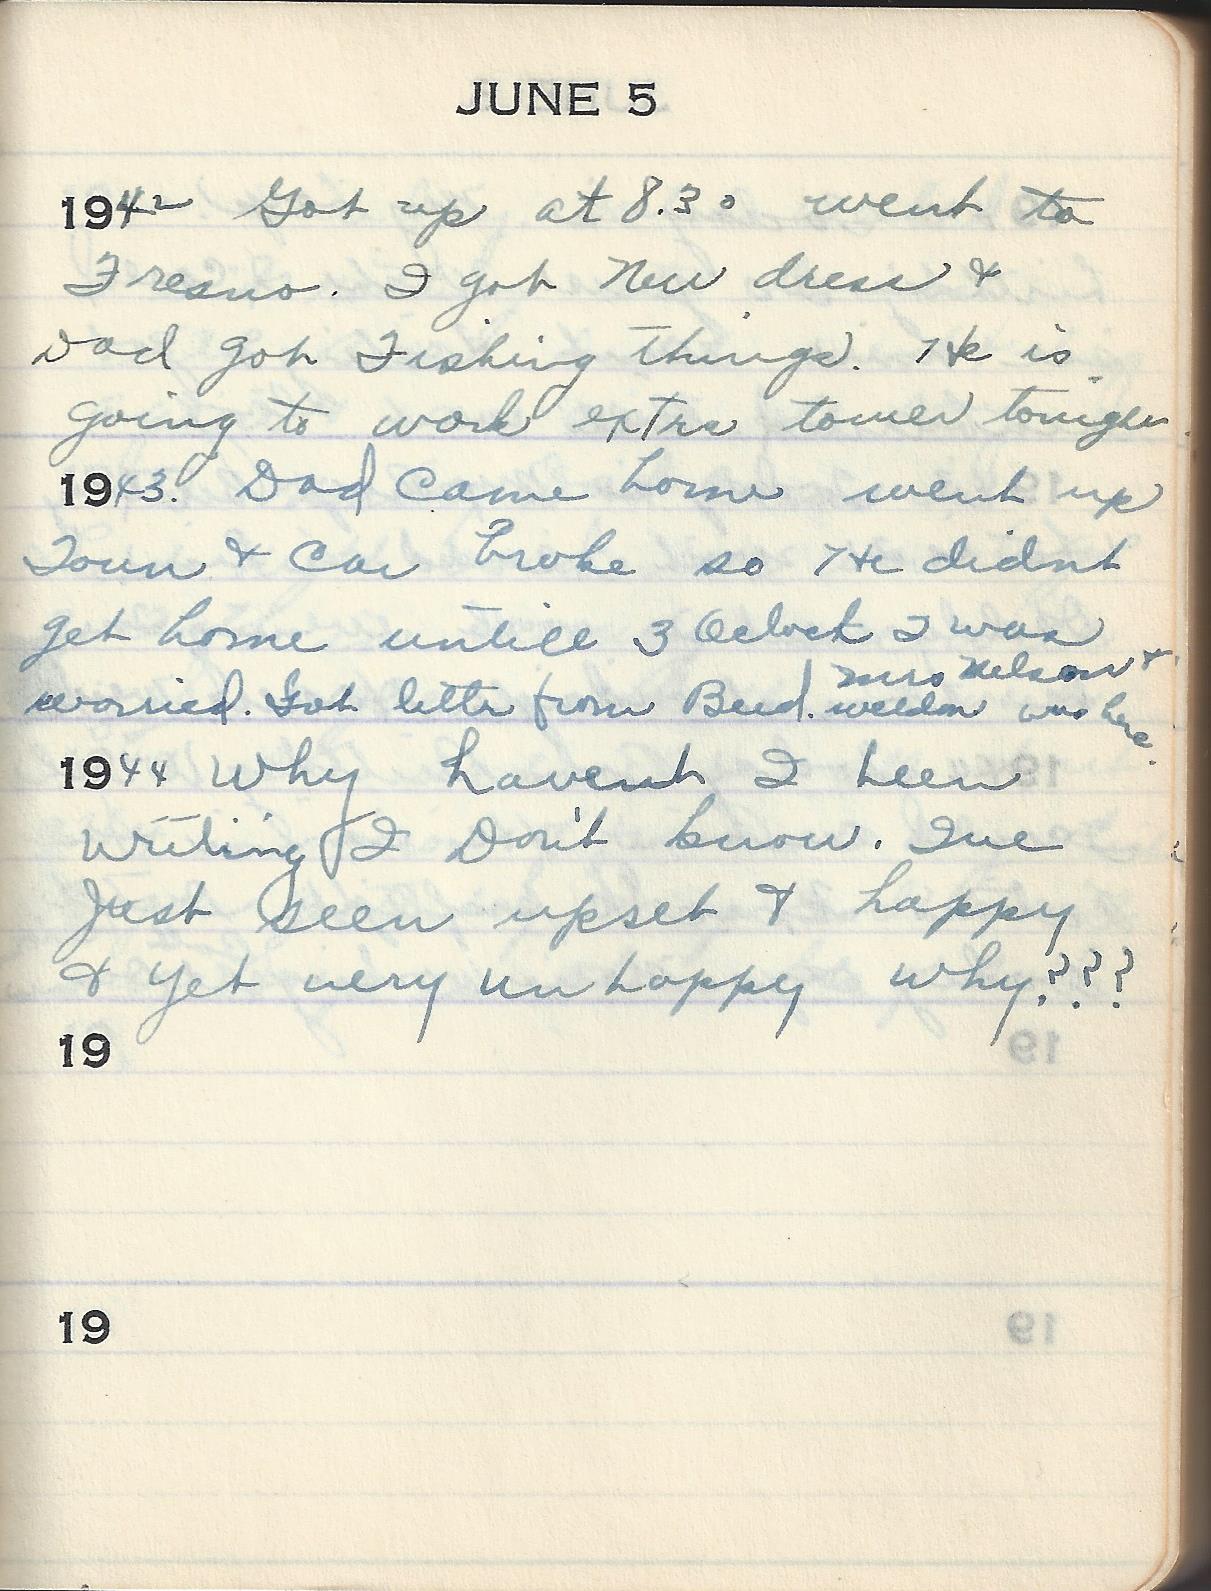 JUNE 5
1942 Got up at 8.30 went to
Fresno. I got New dress &
Dad got Fishing things. He is
going to work extra tower tonight.
1943. Dad Came home went up
Town & Car broke so He didnt
get home untill 3 Oclock I was
worried. Got letter from Bud. Mrs Nelson &
weldon was here.
1944 Why havent I been
writing I Don't know. Ive
Just been upset & happy
& yet very unhappy why???
19
19